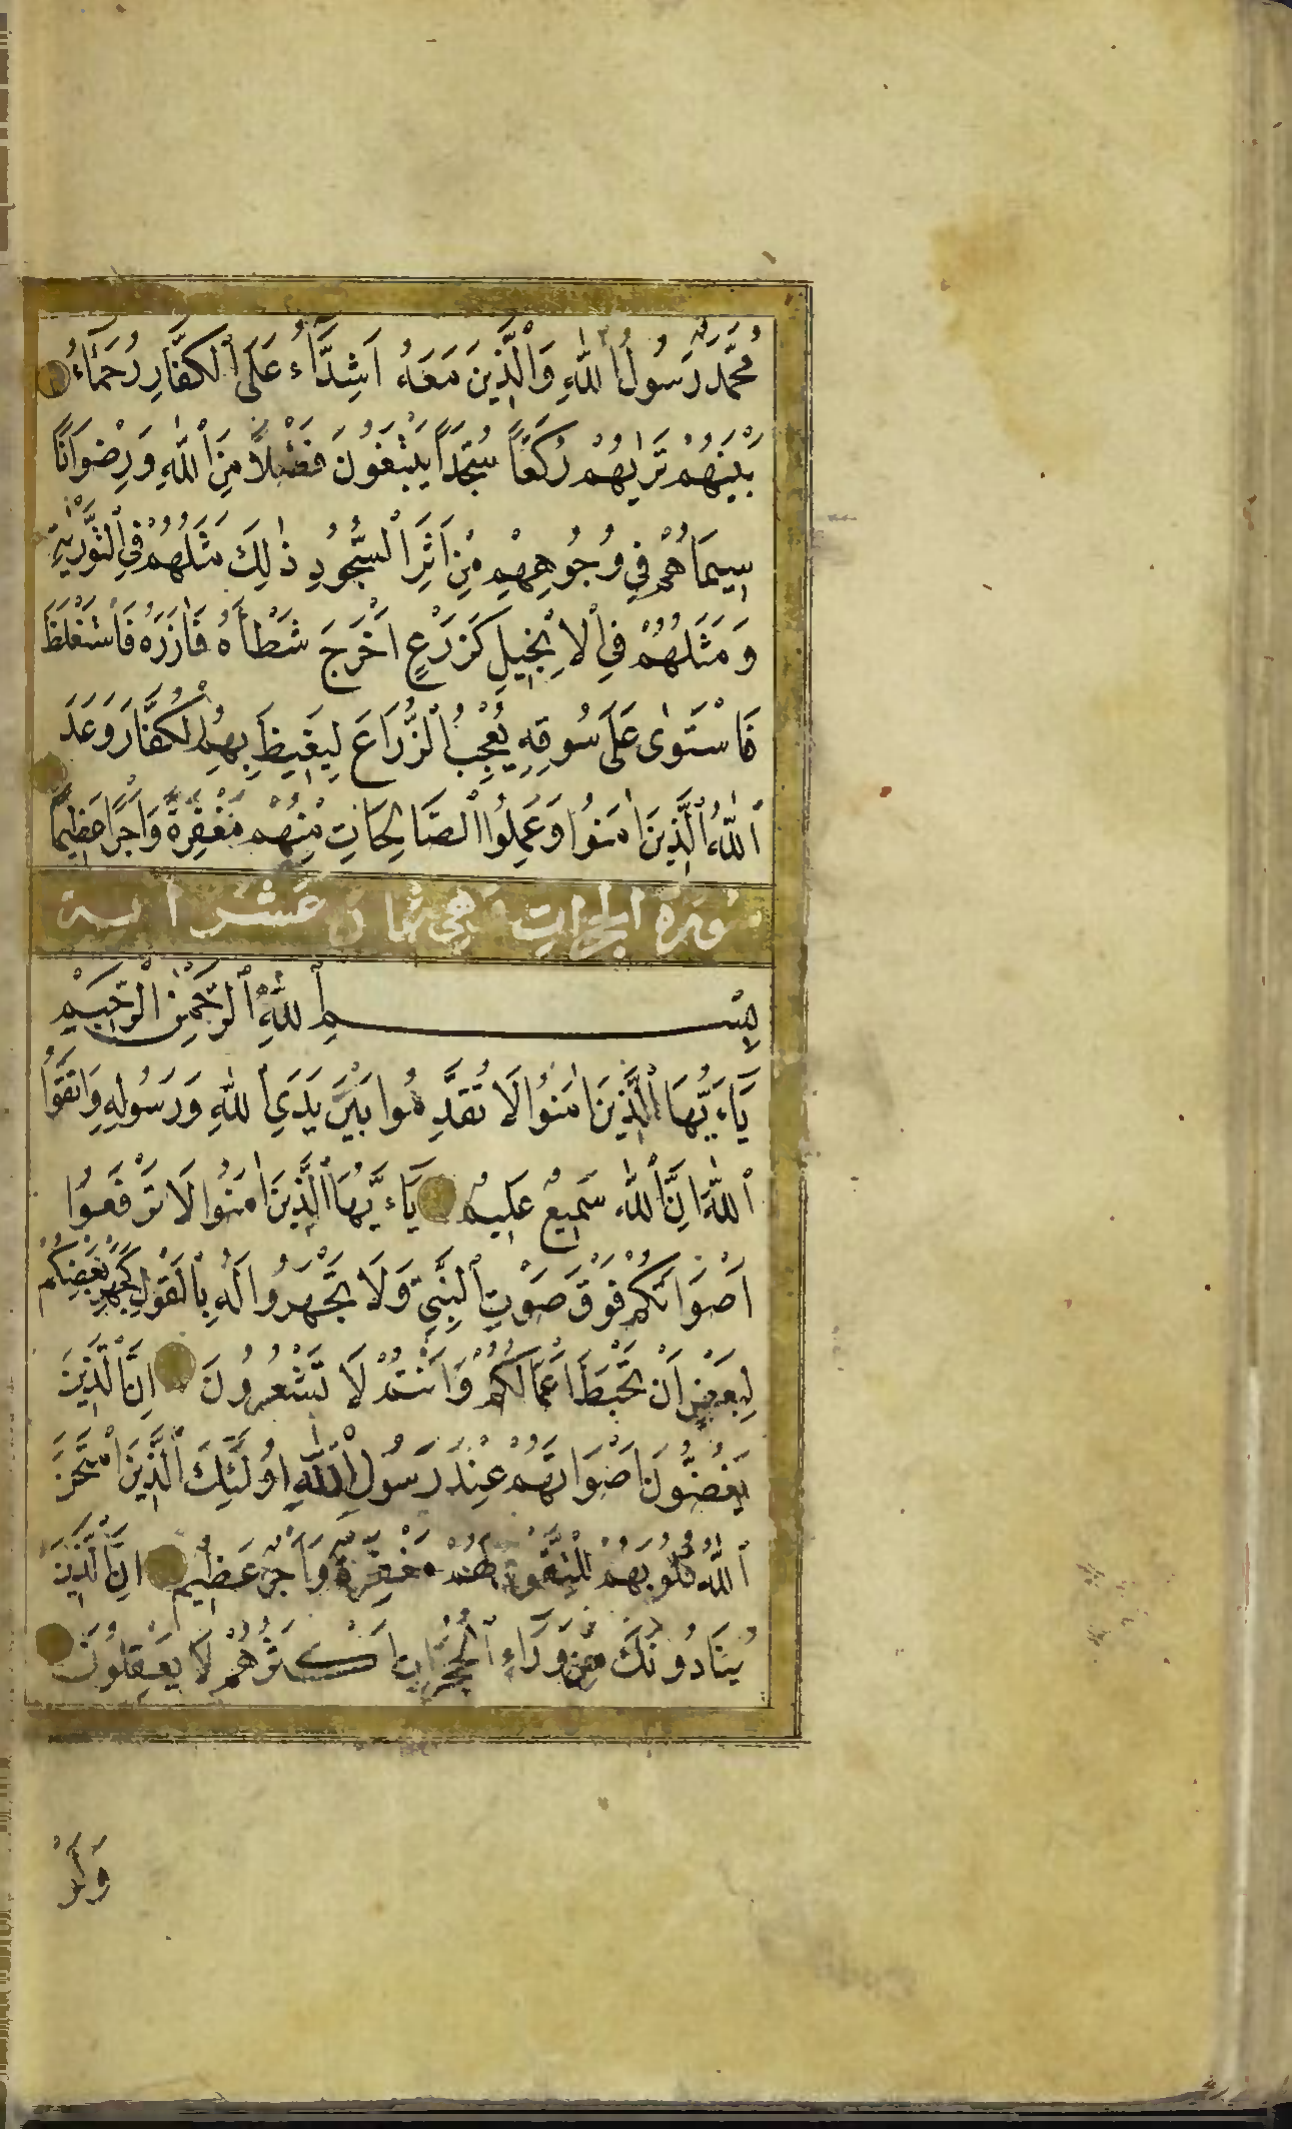 مُحَمَّدٌ رَسُولُ ٱللّٰهِ وَٱلَّذِينَ مَعَهُ اَشِدَّآءُ عَلَى ٱلْكُفَّارِ رُحَمَآءُ
بَيْنَهُمْ تَرٰيهُمْ رُكَّعًا سُجَّدًا يَبْتَغُونَ فَضْلًا مِنَ ٱللّٰهِ وَرِضْوَانًا
سِيمَاهُمْ فِي وُجُوهِهِمْ مِنْ اَثَرِ ٱلسُّجُودِ ذٰلِكَ مَثَلُهُمْ فِي ٱلتَّوْرٰيةِ
وَمَثَلُهُمْ فِي ٱلْاِنْجِيلِ كَزَرْعٍ اَخْرَجَ شَطْأَهُ فَاٰزَرَهُ فَاسْتَغْلَظَ
فَاسْتَوٰى عَلَى سُوقِهِ يُعْجِبُ ٱلزُّرَّاعَ لِيَغِيظَ بِهِمُ ٱلْكُفَّارَ وَعَدَ
ٱللّٰهُ ٱلَّذِينَ اٰمَنُوا وَعَمِلُوا ٱلصَّالِحَاتِ مِنْهُمْ مَغْفِرَةً وَاَجْرًا عَظِيمًا
سورة الحجرات وهي ثمان عشر آية
بِسْمِ ٱللّٰهِ ٱلرَّحْمٰنِ ٱلرَّحِيمِ
يَآءَيُّهَا ٱلَّذِينَ اٰمَنُوا لَا تُقَدِّمُوا بَيْنَ يَدَيِ ٱللّٰهِ وَرَسُولِهِ وَاتَّقُوا
ٱللّٰهَ اِنَّ ٱللّٰهَ سَمِيعٌ عَلِيمٌ يَآءَيُّهَا ٱلَّذِينَ اٰمَنُوا لَا تَرْفَعُوا
اَصْوَاتَكُمْ فَوْقَ صَوْتِ ٱلنَّبِيِّ وَلَا تَجْهَرُوا لَهُ بِالْقَوْلِ كَجَهْرِ بَعْضِكُمْ
لِبَعْضٍ اَنْ تَحْبَطَ اَعْمَالُكُمْ وَاَنْتُمْ لَا تَشْعُرُونَ اِنَّ ٱلَّذِينَ
يَغُضُّونَ اَصْوَاتَهُمْ عِنْدَ رَسُولِ ٱللّٰهِ اُولٰٓئِكَ ٱلَّذِينَ امْتَحَنَ
ٱللّٰهُ قُلُوبَهُمْ لِلتَّقْوٰى لَهُمْ مَغْفِرَةٌ وَاَجْرٌ عَظِيمٌ اِنَّ ٱلَّذِينَ
يُنَادُونَكَ مِنْ وَرَآءِ ٱلْحُجُرَاتِ اَكْثَرُهُمْ لَا يَعْقِلُونَ
وَلَوْ